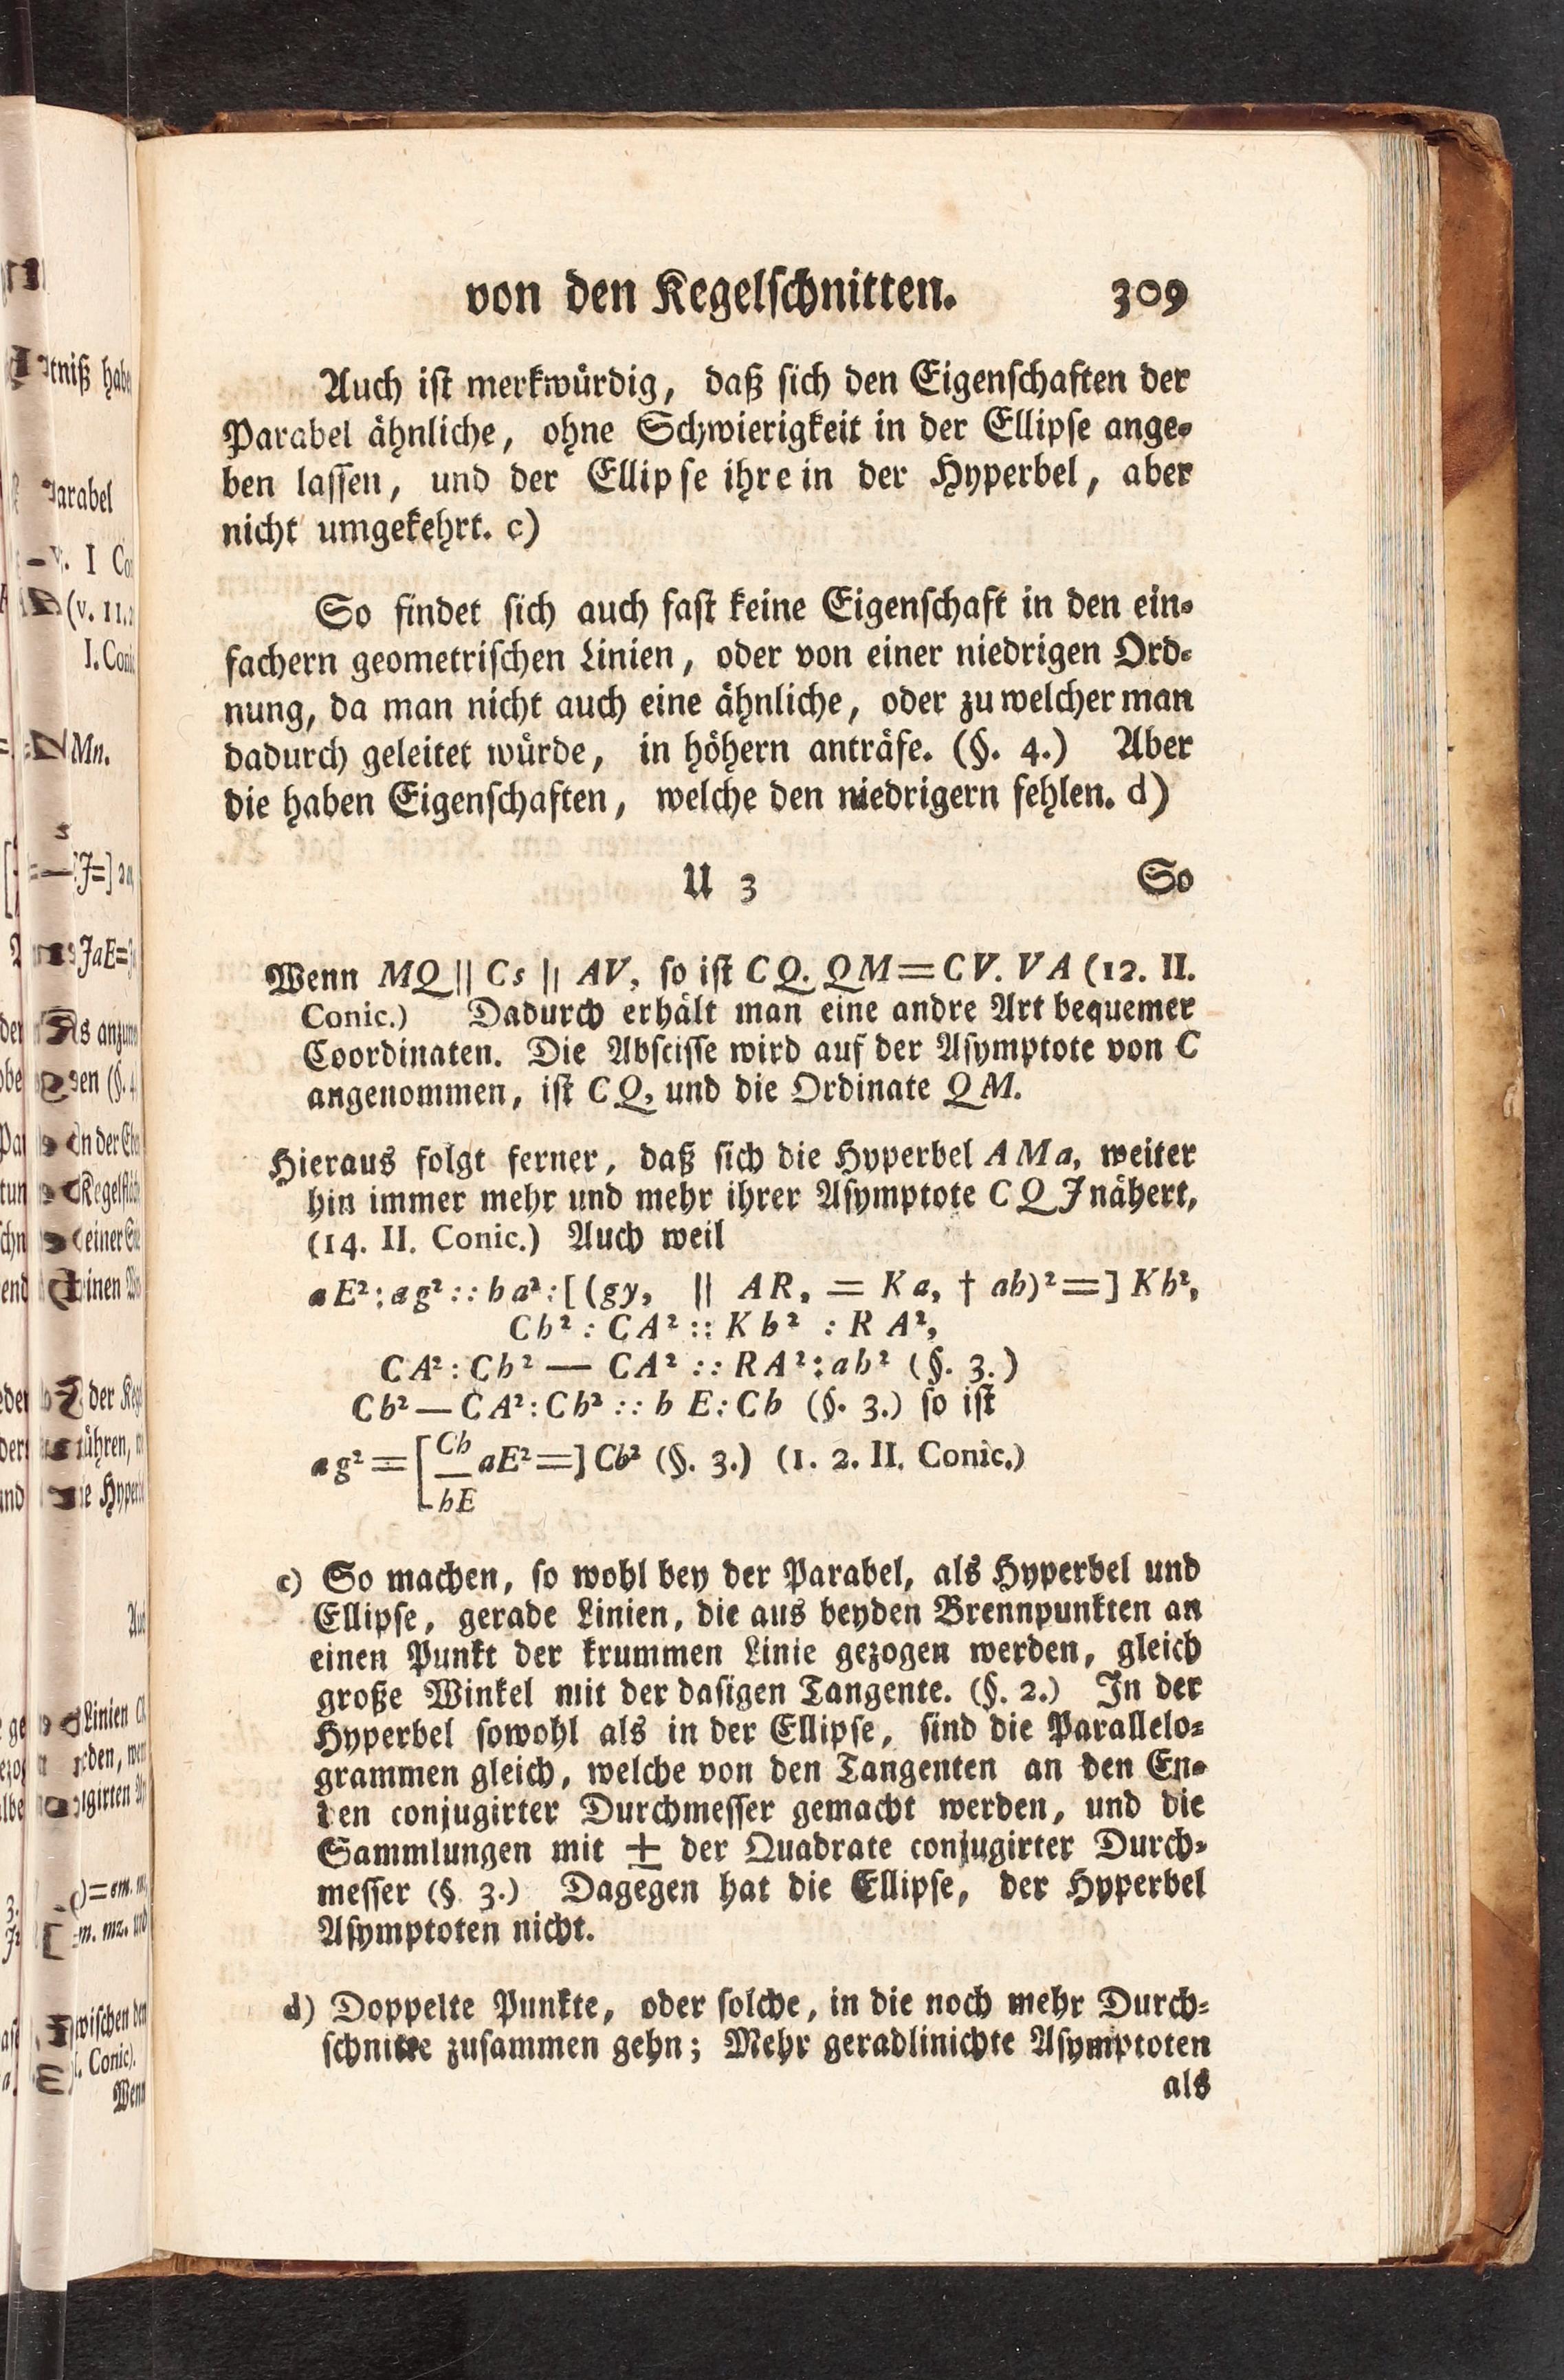 von den Kegelschnitten. 309
Auch ist merkwürdig, daß sich den Eigenschaften der
Parabel ähnliche, ohne Schwierigkeit in der Ellipse ange-
ben lassen, und der Ellipse ihre in der Hyperbel, aber
nicht umgekehrt. c)
So findet sich auch fast keine Eigenschaft in den ein-
fachern geometrischen Linien, oder von einer niedrigen Ord-
nung, da man nicht auch eine ähnliche, oder zu welcher man
dadurch geleitet würde, in höhern anträfe. (§. 4.) Aber
die haben Eigenschaften, welche den niedrigern fehlen. d)
U 3 So
Wenn MQ || Cs || AV, so ist CQ. QM = CV. VA (12. II.
Conic.) Dadurch erhält man eine andre Art bequemer
Coordinaten. Die Abscisse wird auf der Asymptote von C
angenommen, ist CQ, und die Ordinate QM.
Hieraus folgt ferner, daß sich die Hyperbel AMa, weiter
hin immer mehr und mehr ihrer Asymptote CQJ nähert,
(14. II. Conic.) Auch weil
aE²:ag²::ba²:[(gy, || AR, = Ka, † ab)²=] Kb²,
Cb² : CA² :: Kb² : RA²,
CA² : Cb² — CA² :: RA² : ab² (§. 3.)
Cb² — CA² : Cb² :: bE : Cb (§. 3.) so ist
ag² = [Cb/bE aE²=] Cb² (§. 3.) (1. 2. II. Conic.)
c) So machen, so wohl bey der Parabel, als Hyperbel und
Ellipse, gerade Linien, die aus beyden Brennpunkten an
einen Punkt der krummen Linie gezogen werden, gleich
große Winkel mit der dasigen Tangente. (§. 2.) In der
Hyperbel sowohl als in der Ellipse, sind die Parallelo-
grammen gleich, welche von den Tangenten an den En-
den conjugirter Durchmesser gemacht werden, und die
Sammlungen mit ± der Quadrate conjugirter Durch-
messer (§ 3.) Dagegen hat die Ellipse, der Hyperbel
Asymptoten nicht.
d) Doppelte Punkte, oder solche, in die noch mehr Durch-
schnitte zusammen gehn; Mehr geradlinichte Asymptoten
als